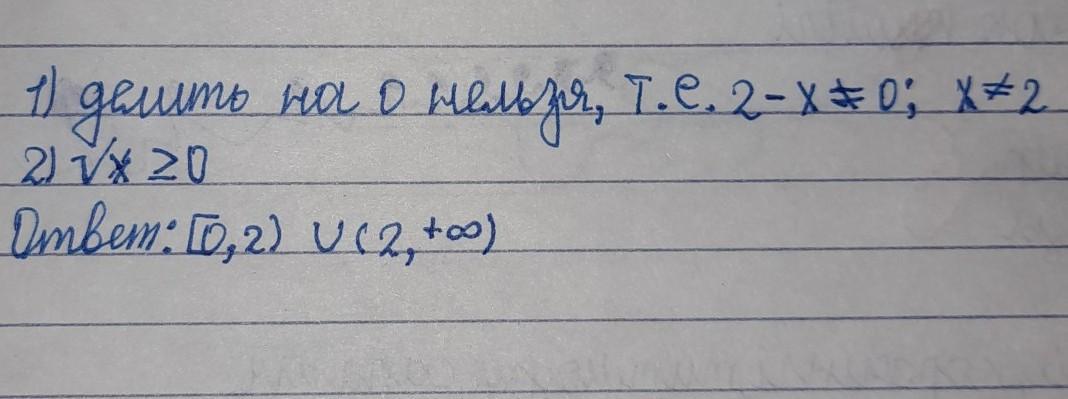 1) делить на 0 нельзя, т.е. 2 - x ≠ 0; x ≠ 2
2) √x ≥ 0
Ответ: [0,2) ∪ (2, +∞)